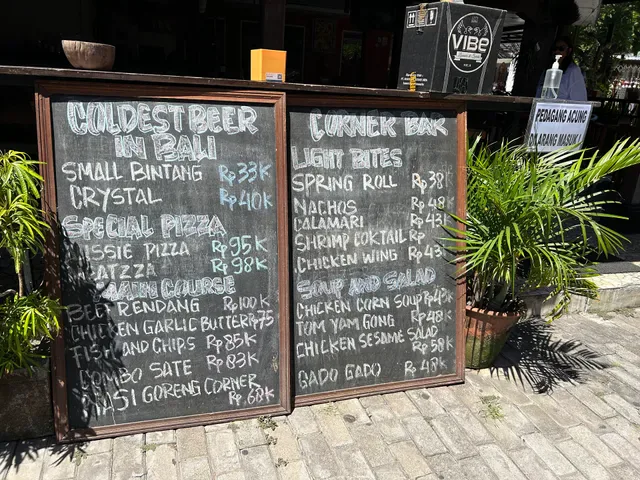 COLDEST BEER
IN BALI
SMALL BINTANG Rp 33K
CRYSTAL Rp 40K
SPECIAL PIZZA
PIZZA Rp 95K
Rp 98K
MAIN COURSE
BEEF RENDANG Rp 100 K
CHICKEN GARLIC BUTTER Rp 75
FISH AND CHIPS Rp 85K
COMBO SATE Rp 83K
NASI GORENG CORNER
Rp 68K
CORNER BAR
LIGHT BITES
SPRING ROLL Rp 38K
NACHOS Rp 48K
CALAMARI Rp 43K
SHRIMP COKTAIL Rp
CHICKEN WING Rp 43
SOUP AND SALAD
CHICKEN CORN SOUP Rp 43K
TOM YAM GONG Rp 48K
CHICKEN SESAME SALAD
Rp 58K
GADO GADO Rp 48K
VIBE
PEDAGANG ACUNG
DILARANG MASUK